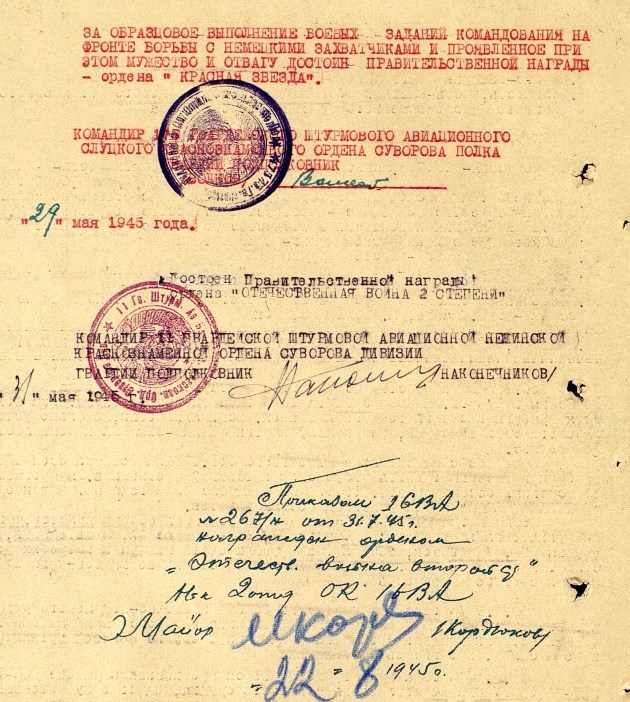 ЗА ОБРАЗЦОВОЕ ВЫПОЛНЕНИЕ БОЕВЫХ ЗАДАНИЙ КОМАНДОВАНИЯ НА
ФРОНТЕ БОРЬБЫ С НЕМЕЦКИМИ ЗАХВАТЧИКАМИ И ПРОЯВЛЕННОЕ ПРИ
ЭТОМ МУЖЕСТВО И ОТВАГУ ДОСТОИН ПРАВИТЕЛЬСТВЕННОЙ НАГРАДЫ
- ордена " КРАСНАЯ ЗВЕЗДА".
КОМАНДИР ШТУРМОВОГО АВИАЦИОННОГО
СЛУЦКОГО КРАСНОЗНАМЕННОГО ОРДЕНА СУВОРОВА ПОЛКА
"29" мая 1945 года.
Достоен Правительственной награды
ордена "ОТЕЧЕСТВЕННАЯ ВОЙНА 2 СТЕПЕНИ"
КОМАНДИР 11 ГВАРДЕЙСКОЙ ШТУРМОВОЙ АВИАЦИОННОЙ НЕЖИНСКОЙ
КРАСНОЗНАМЕННОЙ ОРДЕНА СУВОРОВА ДИВИЗИИ
ГВАРДИИ ПОДПОЛКОВНИК /НАКОНЕЧНИКОВ/
"31" мая 1945 г.
Приказом 16 ВА
№ 267/н от 31.7.45г.
награжден орденом
"Отечеств. война второй ст"
Нач 2 отд ОК 16 ВА
Майор /Кордюков/
"22" 8 1945г.